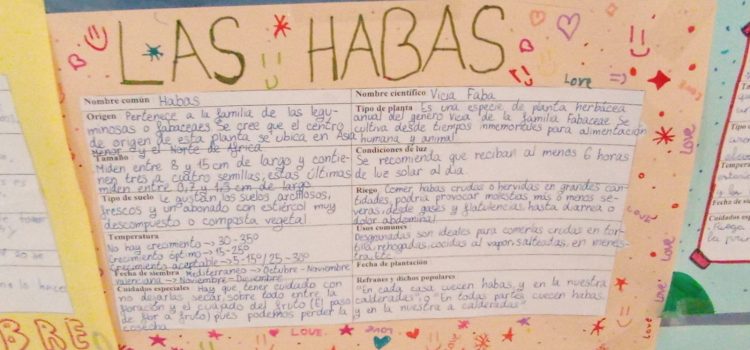 LAS HABAS
Love
Nombre común Habas
Nombre científico Vicia Faba
Origen Pertenece a la familia de las legu-
minosas o fabaceaes Se cree que el centro
de origen de esta planta se ubica en Asia
Menor y el Norte de Africa
Tipo de planta Es una especie de planta herbácea
anual del género vicia de la familia Fabaceae Se
cultiva desde tiempos inmemoriales para alimentación
humana y animal
Tamaño
Miden entre 8 y 15 cm de largo y contie-
nen tres a cuatro semillas, estas últimas
miden entre 0,7 y 1,3 cm de largo
Condiciones de luz
Se recomienda que reciban al menos 6 horas
de luz solar al dia.
Tipo de suelo Le gustan los suelos arcillosos,
frescos y un abonado con estiercol muy
descompuesto o composta vegetal
Riego Comer, habas crudas o hervidas en grandes can-
tidades, podria provocar molestias más o menos se-
veras, desde gases y flatulencias, hasta diarrea o
dolor abdominal
Temperatura
No hay crecimiento → 30-35º
Crecimiento óptimo → 15-25º
Crecimiento aceptable → 5-15º/25-30º
Usos comunes
Desgranadas son ideales para comerlas crudas en tor-
tilla, rehogadas, cocidas al vapor, salteadas, en menes-
tra, etc
Fecha de siembra Mediterráneo → Octubre - Noviembre
Noviembre - Diciembre
Fecha de plantación
Cuidados especiales Hay que tener cuidado con
no dejarlas secar sobre todo entre la
floración y el cuajado del fruto (El paso
de flor a fruto) pues podemos perder la
cosecha
Refranes y dichos populares
"En cada casa cuecen habas, y en la nuestra
calderadas" o "En todas partes cuecen habas
y en la nuestra a calderadas"
LOVE
love
BRE